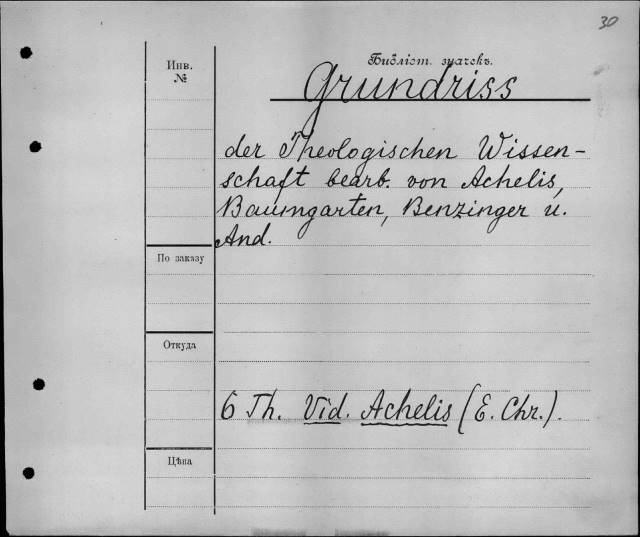 30
Инв.
№
Библіот. значекъ.
Grundriss
der Theologischen Wissen-
schaft bearb. von Achelis,
Baumgarten, Benzinger u.
And.
По заказу
Откуда
6 Th. Vid. Achelis (E. Chr.).
Цѣна